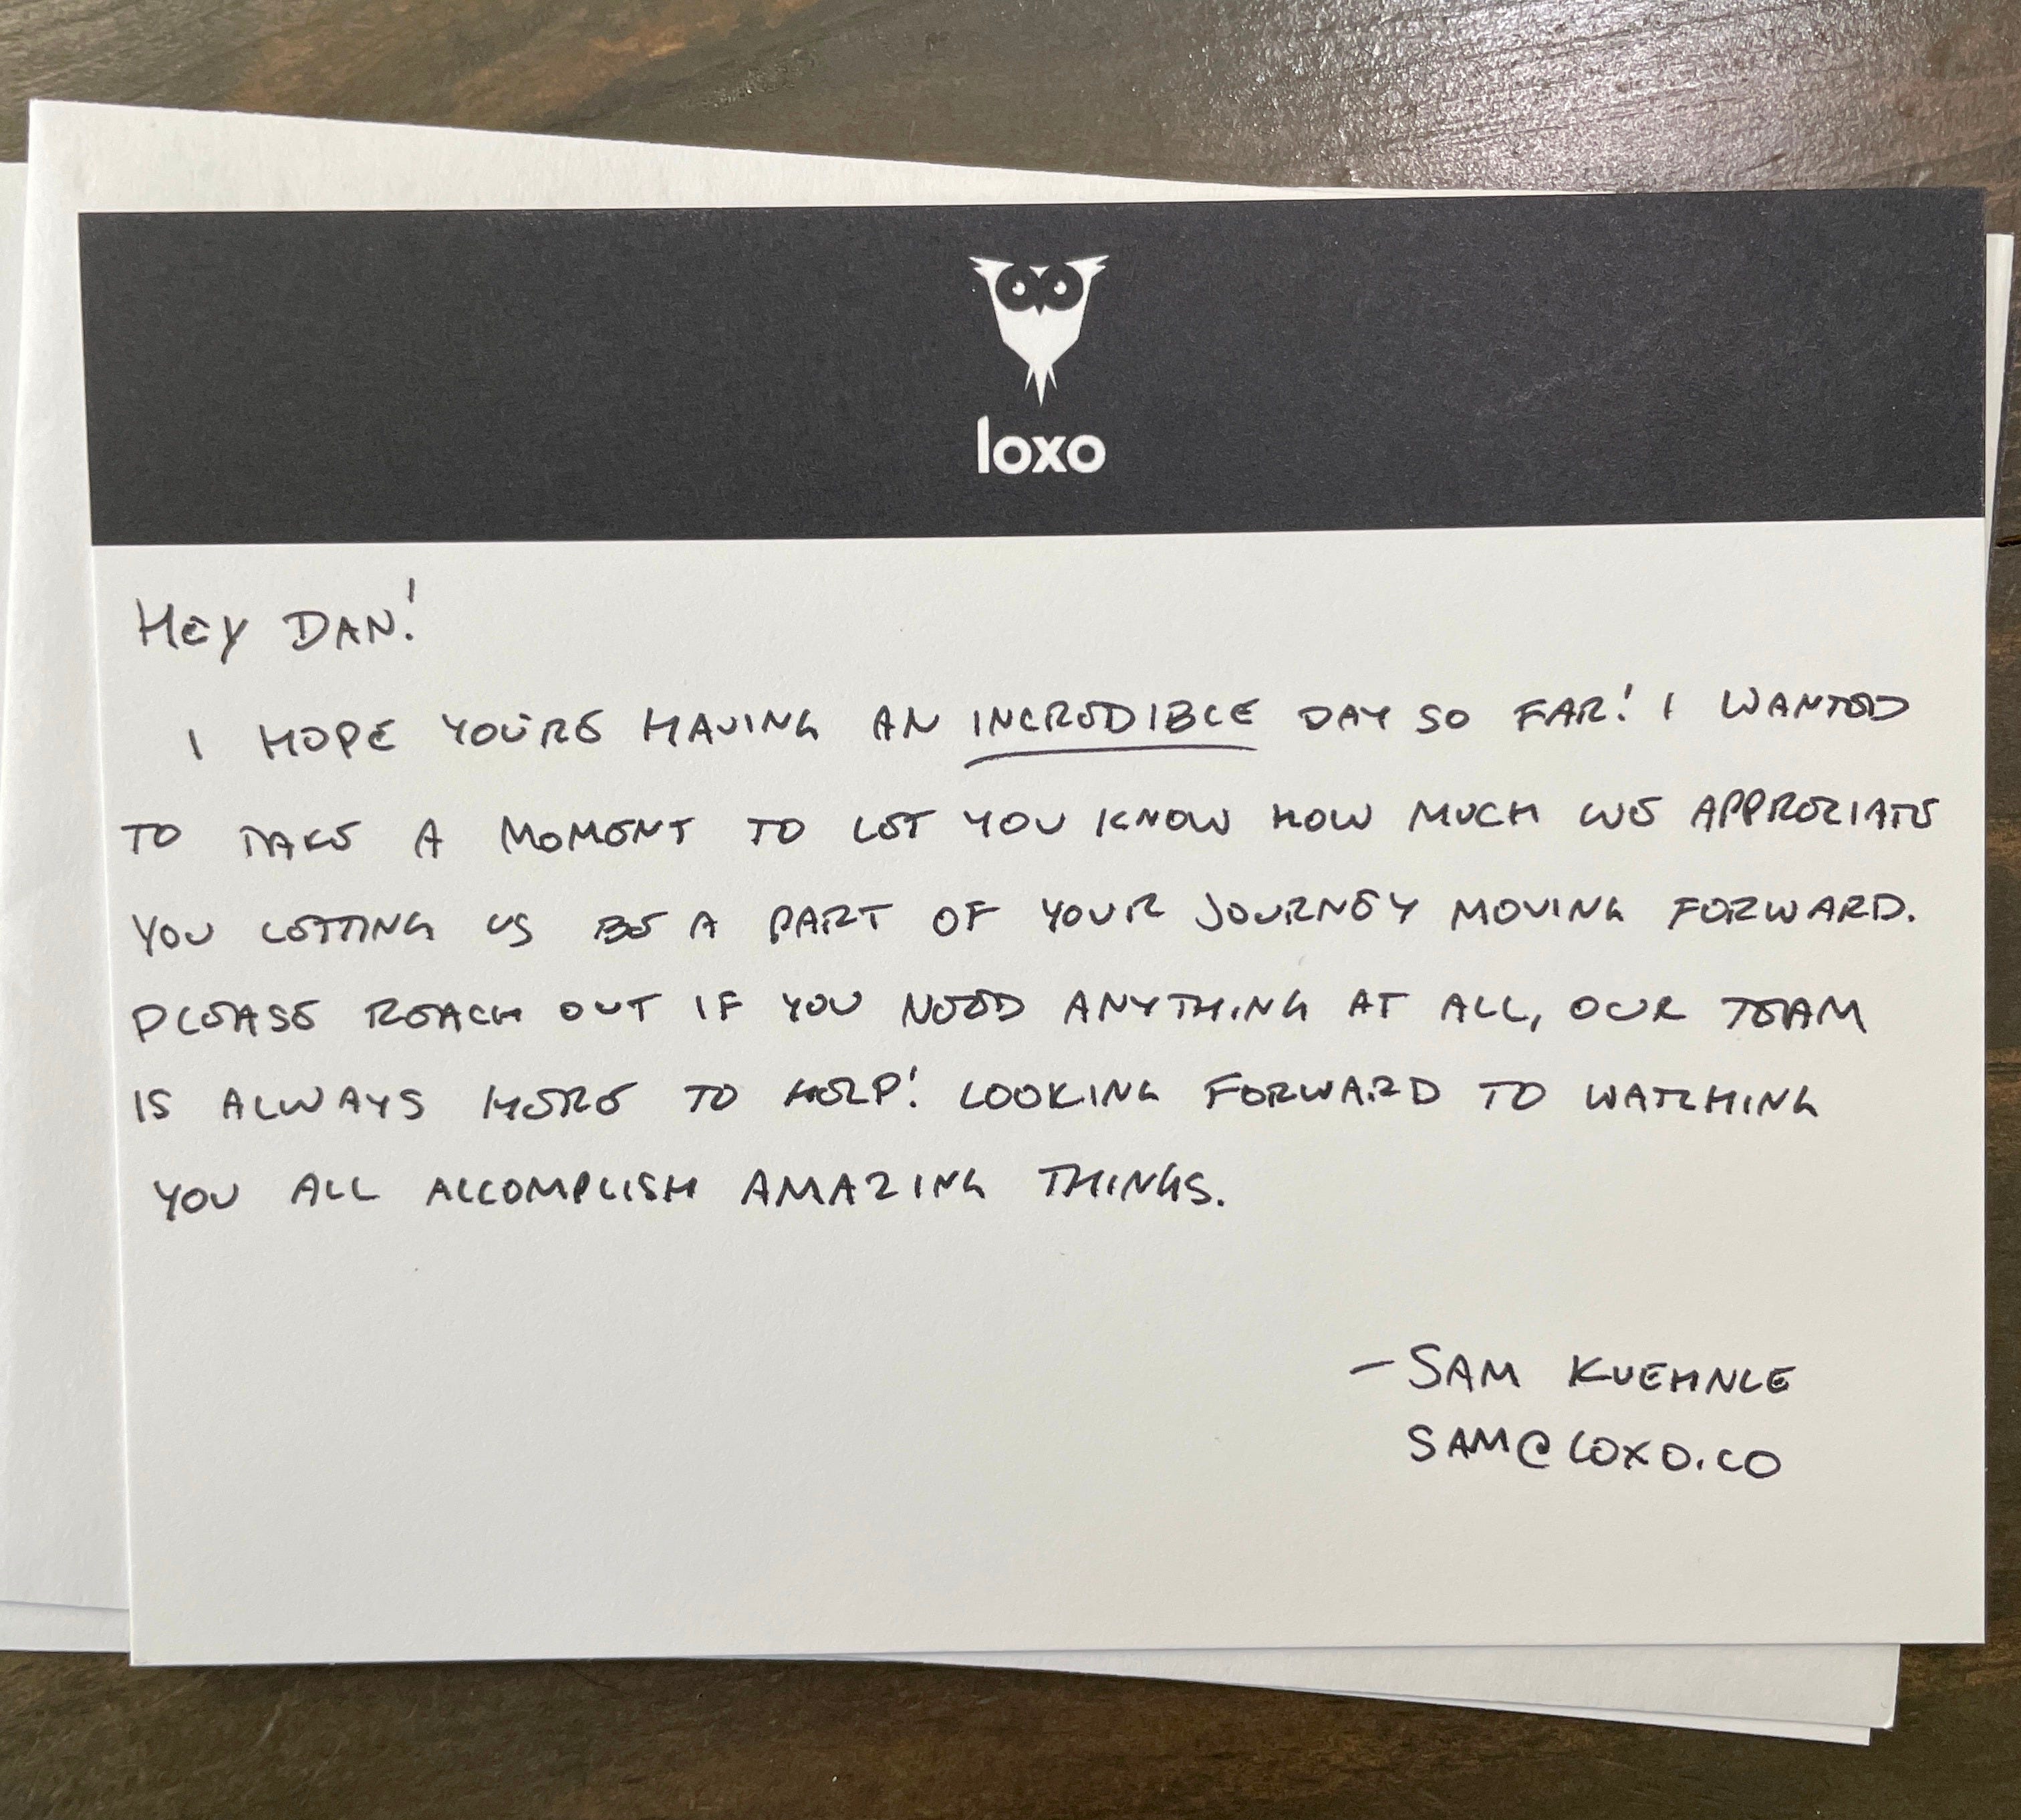 loxo
HEY DAN!
I HOPE YOU'RE HAVING AN INCREDIBLE DAY SO FAR! I WANTED
TO TAKE A MOMENT TO LET YOU KNOW HOW MUCH WE APPRECIATE
YOU LETTING US BE A PART OF YOUR JOURNEY MOVING FORWARD.
PLEASE REACH OUT IF YOU NEED ANYTHING AT ALL, OUR TEAM
IS ALWAYS HERE TO HELP! LOOKING FORWARD TO WATCHING
YOU ALL ACCOMPLISH AMAZING THINGS.
– SAM KUEHNLE
SAM@LOXO.CO